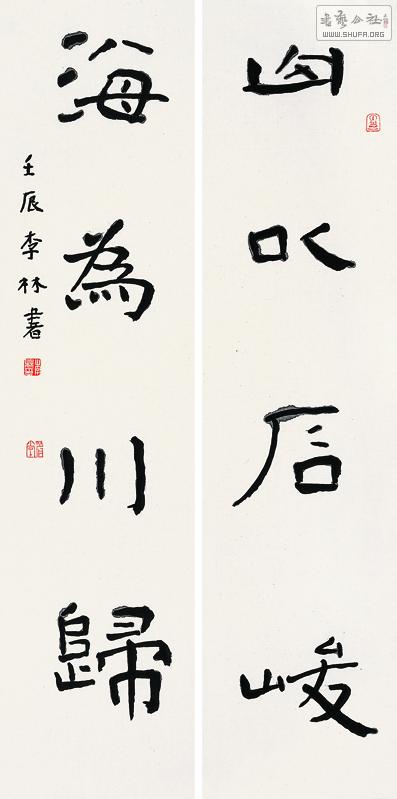 書藝公社
WWW.SHUFA.ORG
山以石峻
海為川歸
壬辰李林書